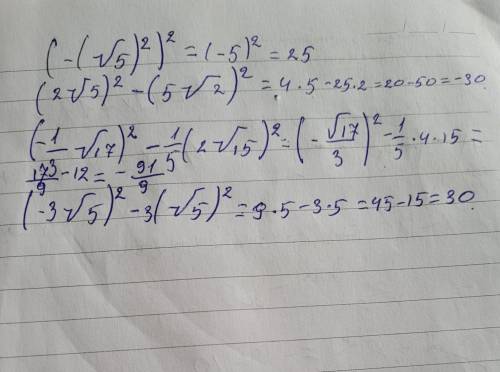 (-(√5)²)² = (-5)² = 25
(2√5)² - (5√2)² = 4·5 - 25·2 = 20 - 50 = -30
(-1/3 √17)² - 1/5 (2√15)² = (-√17/3)² - 1/5 · 4 · 15 =
17/9 - 12 = -91/9
(-3√5)² - 3(√5)² = 9·5 - 3·5 = 45 - 15 = 30